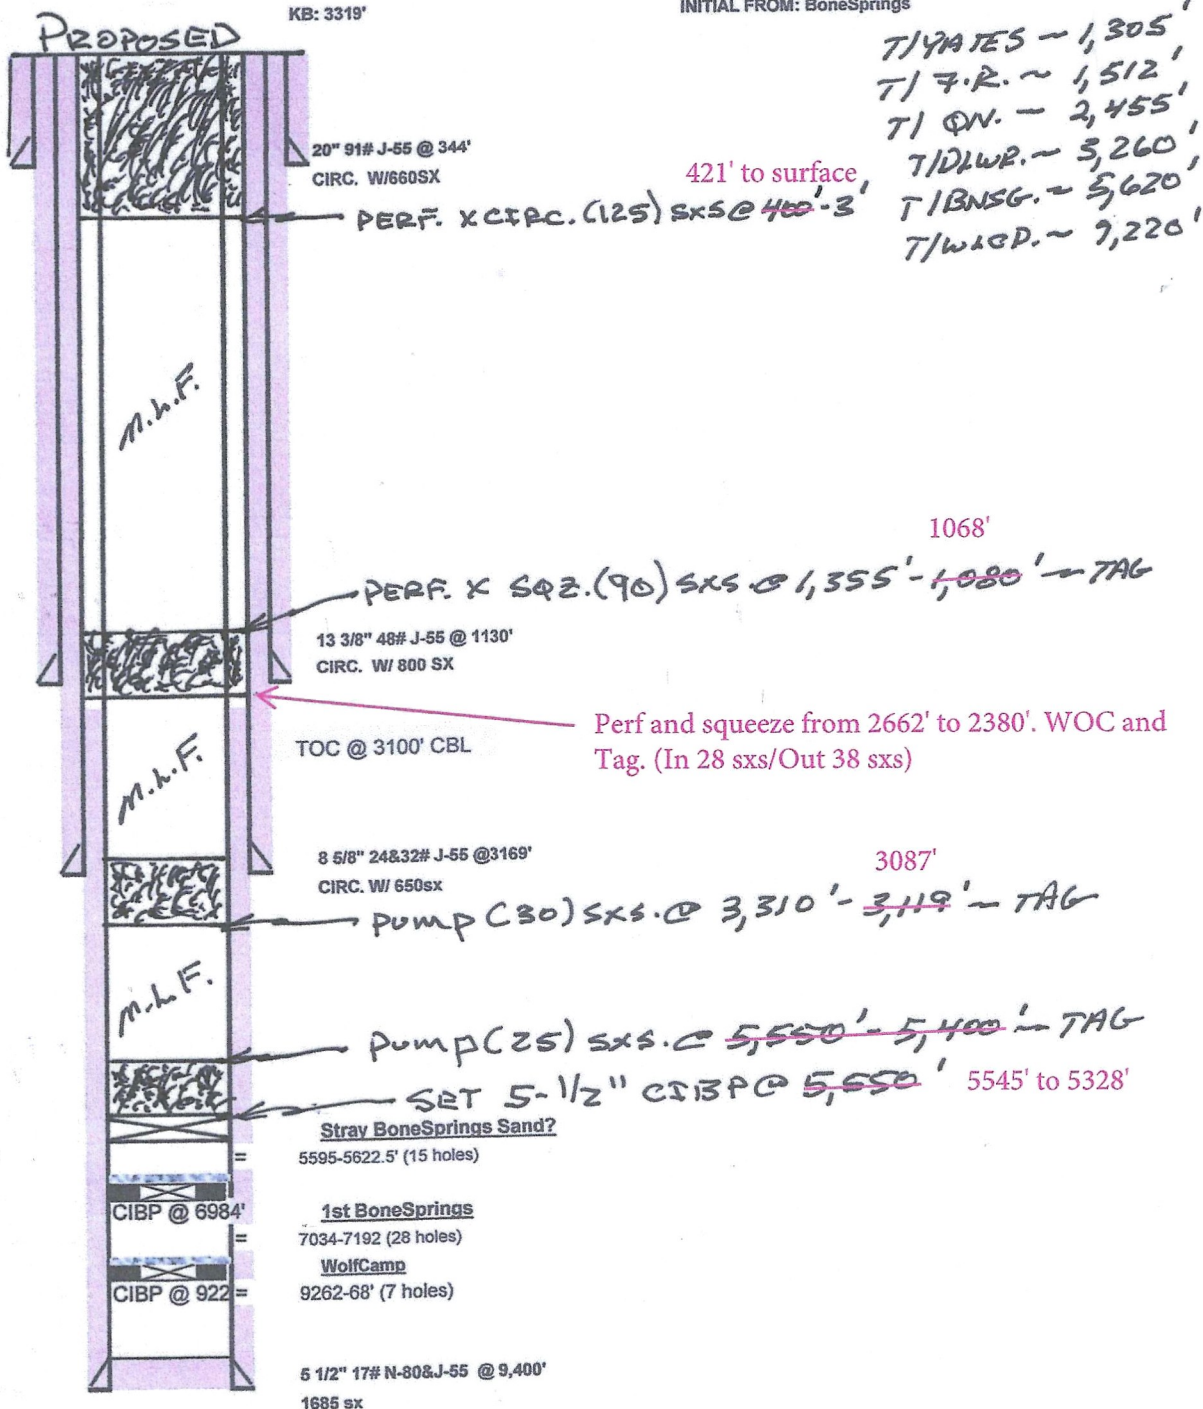 KB: 3319'
INITIAL FROM: BoneSprings
PROPOSED
T/YATES ~ 1,305'
T/ 7.R. ~ 1,512'
T/ QN. ~ 2,455'
T/DLWR. ~ 3,260'
T/BNSG. ~ 5,620'
T/WLCP. ~ 9,220'
20" 91# J-55 @ 344'
CIRC. W/660SX
421' to surface
PERF. X CIRC. (125) SXS @ 400'-3'
M.L.F.
1068'
PERF. X SQZ. (90) SXS. @ 1,355'-1,080' ~ TAG
13 3/8" 48# J-55 @ 1130'
CIRC. W/ 800 SX
Perf and squeeze from 2662' to 2380'. WOC and
Tag. (In 28 sxs/Out 38 sxs)
TOC @ 3100' CBL
M.L.F.
8 5/8" 24&32# J-55 @3169'
CIRC. W/ 650sx
3087'
PUMP (30) SXS. @ 3,310'-3,119' ~ TAG
M.L.F.
PUMP (25) SXS. @ 5,550'-5,400' ~ TAG
SET 5-1/2" CIBP @ 5,550'
5545' to 5328'
Stray BoneSprings Sand?
= 5595-5622.5' (15 holes)
CIBP @ 6984'
1st BoneSprings
= 7034-7192 (28 holes)
WolfCamp
CIBP @ 922 = 9262-68' (7 holes)
5 1/2" 17# N-80&J-55 @ 9,400'
1685 sx